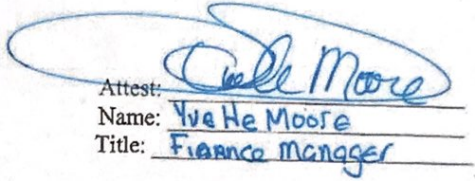 Attest: Yvette Moore
Name: Yvette Moore
Title: Finance Manager